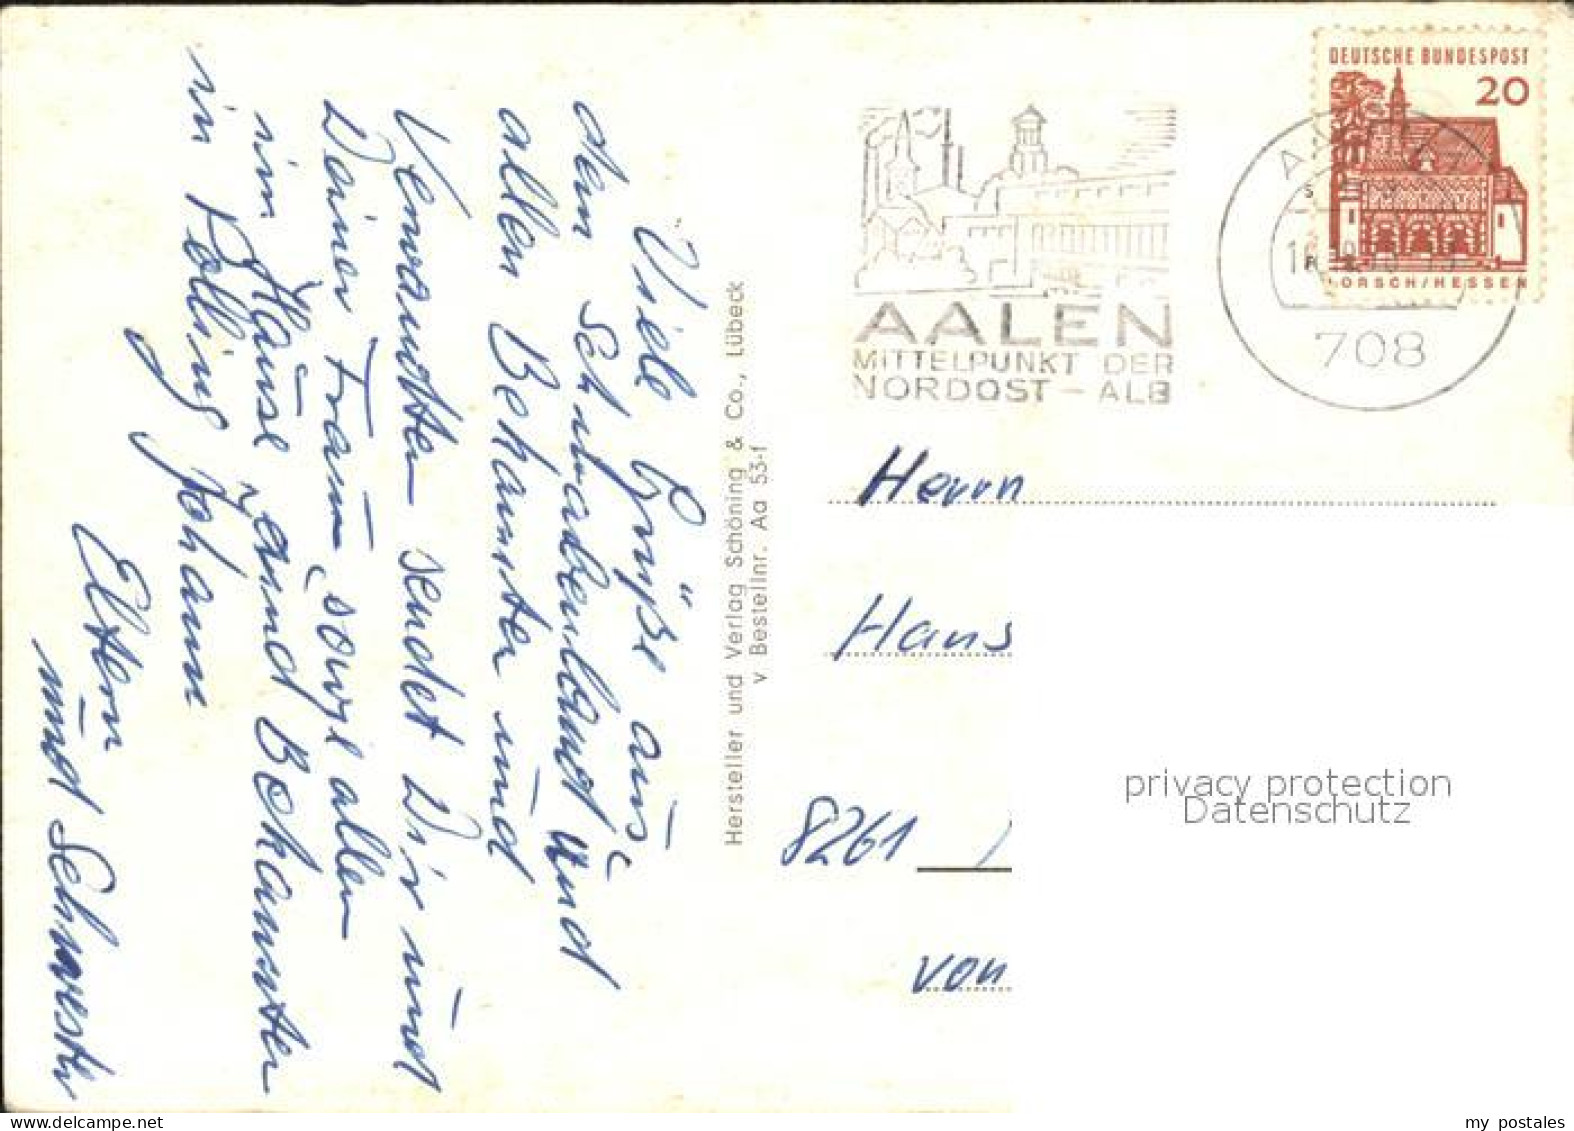 Viele Grüße aus
dem Schwabenland und
allen Bekannten und
Verwandten sendet Dir und
Deiner Frau sowie allen
im Hause und Bekannten
in Polling Johann
Eltern
und Schwester
Hersteller und Verlag Schöning & Co., Lübeck
v Bestellnr. Aa 53-f
AALEN
MITTELPUNKT DER
NORDOST - ALB
DEUTSCHE BUNDESPOST
20
LORSCH/HESSEN
708
Herrn
Hans
8261
von
privacy protection
Datenschutz
my postales